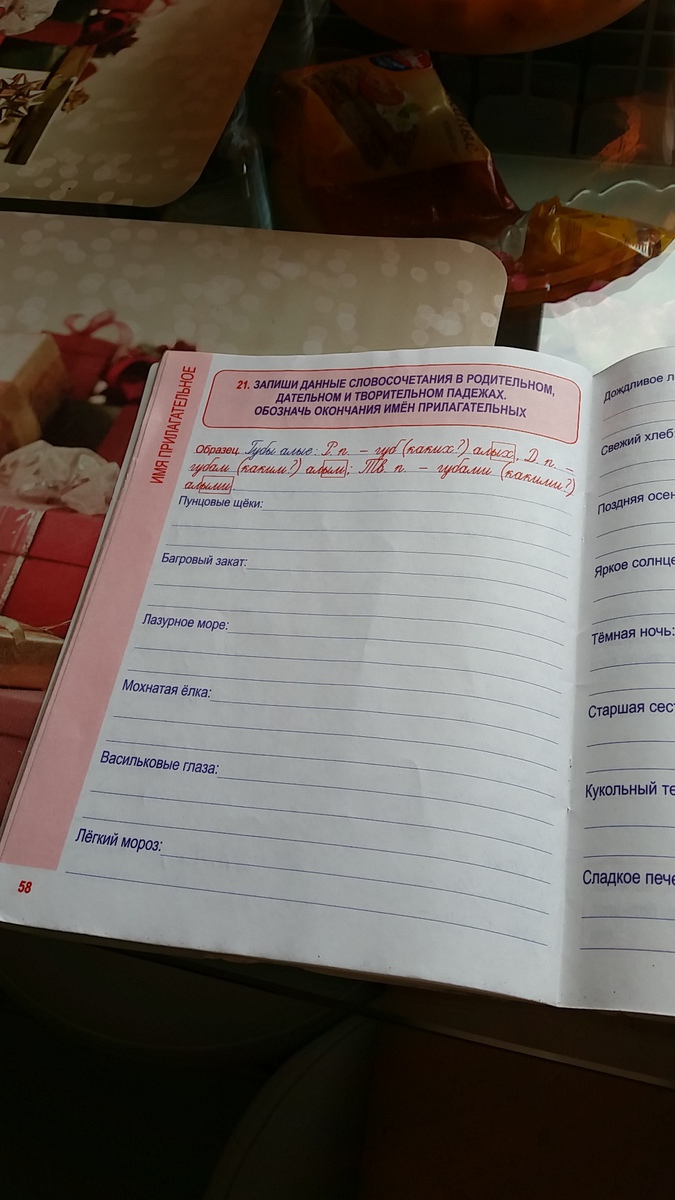 ИМЯ ПРИЛАГАТЕЛЬНОЕ
21. ЗАПИШИ ДАННЫЕ СЛОВОСОЧЕТАНИЯ В РОДИТЕЛЬНОМ,
ДАТЕЛЬНОМ И ТВОРИТЕЛЬНОМ ПАДЕЖАХ.
ОБОЗНАЧЬ ОКОНЧАНИЯ ИМЁН ПРИЛАГАТЕЛЬНЫХ
Образец. Губы алые: Р. п. – губ (каких?) алых, Д. п. –
губам (каким?) алым; ТВ. п. – губами (какими?)
алыми.
Пунцовые щёки:
Багровый закат:
Лазурное море:
Мохнатая ёлка:
Васильковые глаза:
Лёгкий мороз:
58
Дождливое л
Свежий хлеб
Поздняя осен
Яркое солнце
Тёмная ночь:
Старшая сест
Кукольный те
Сладкое пече